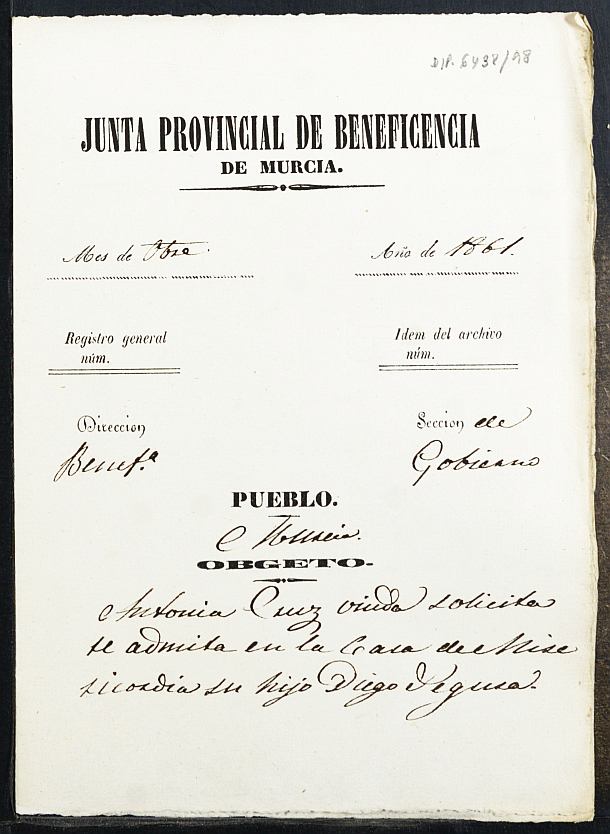 DIP. 6438/98
JUNTA PROVINCIAL DE BENEFICENCIA
DE MURCIA.
Mes de Obre
Año de 1861.
Registro general
núm.
Idem del archivo
núm.
Direccion
Benef.ª
Seccion de
Gobierno
PUEBLO.
Murcia.
OBGETO.
Antonia Cruz viuda solicita
se admita en la Casa de Mise
ricordia su hijo Diego Segura.